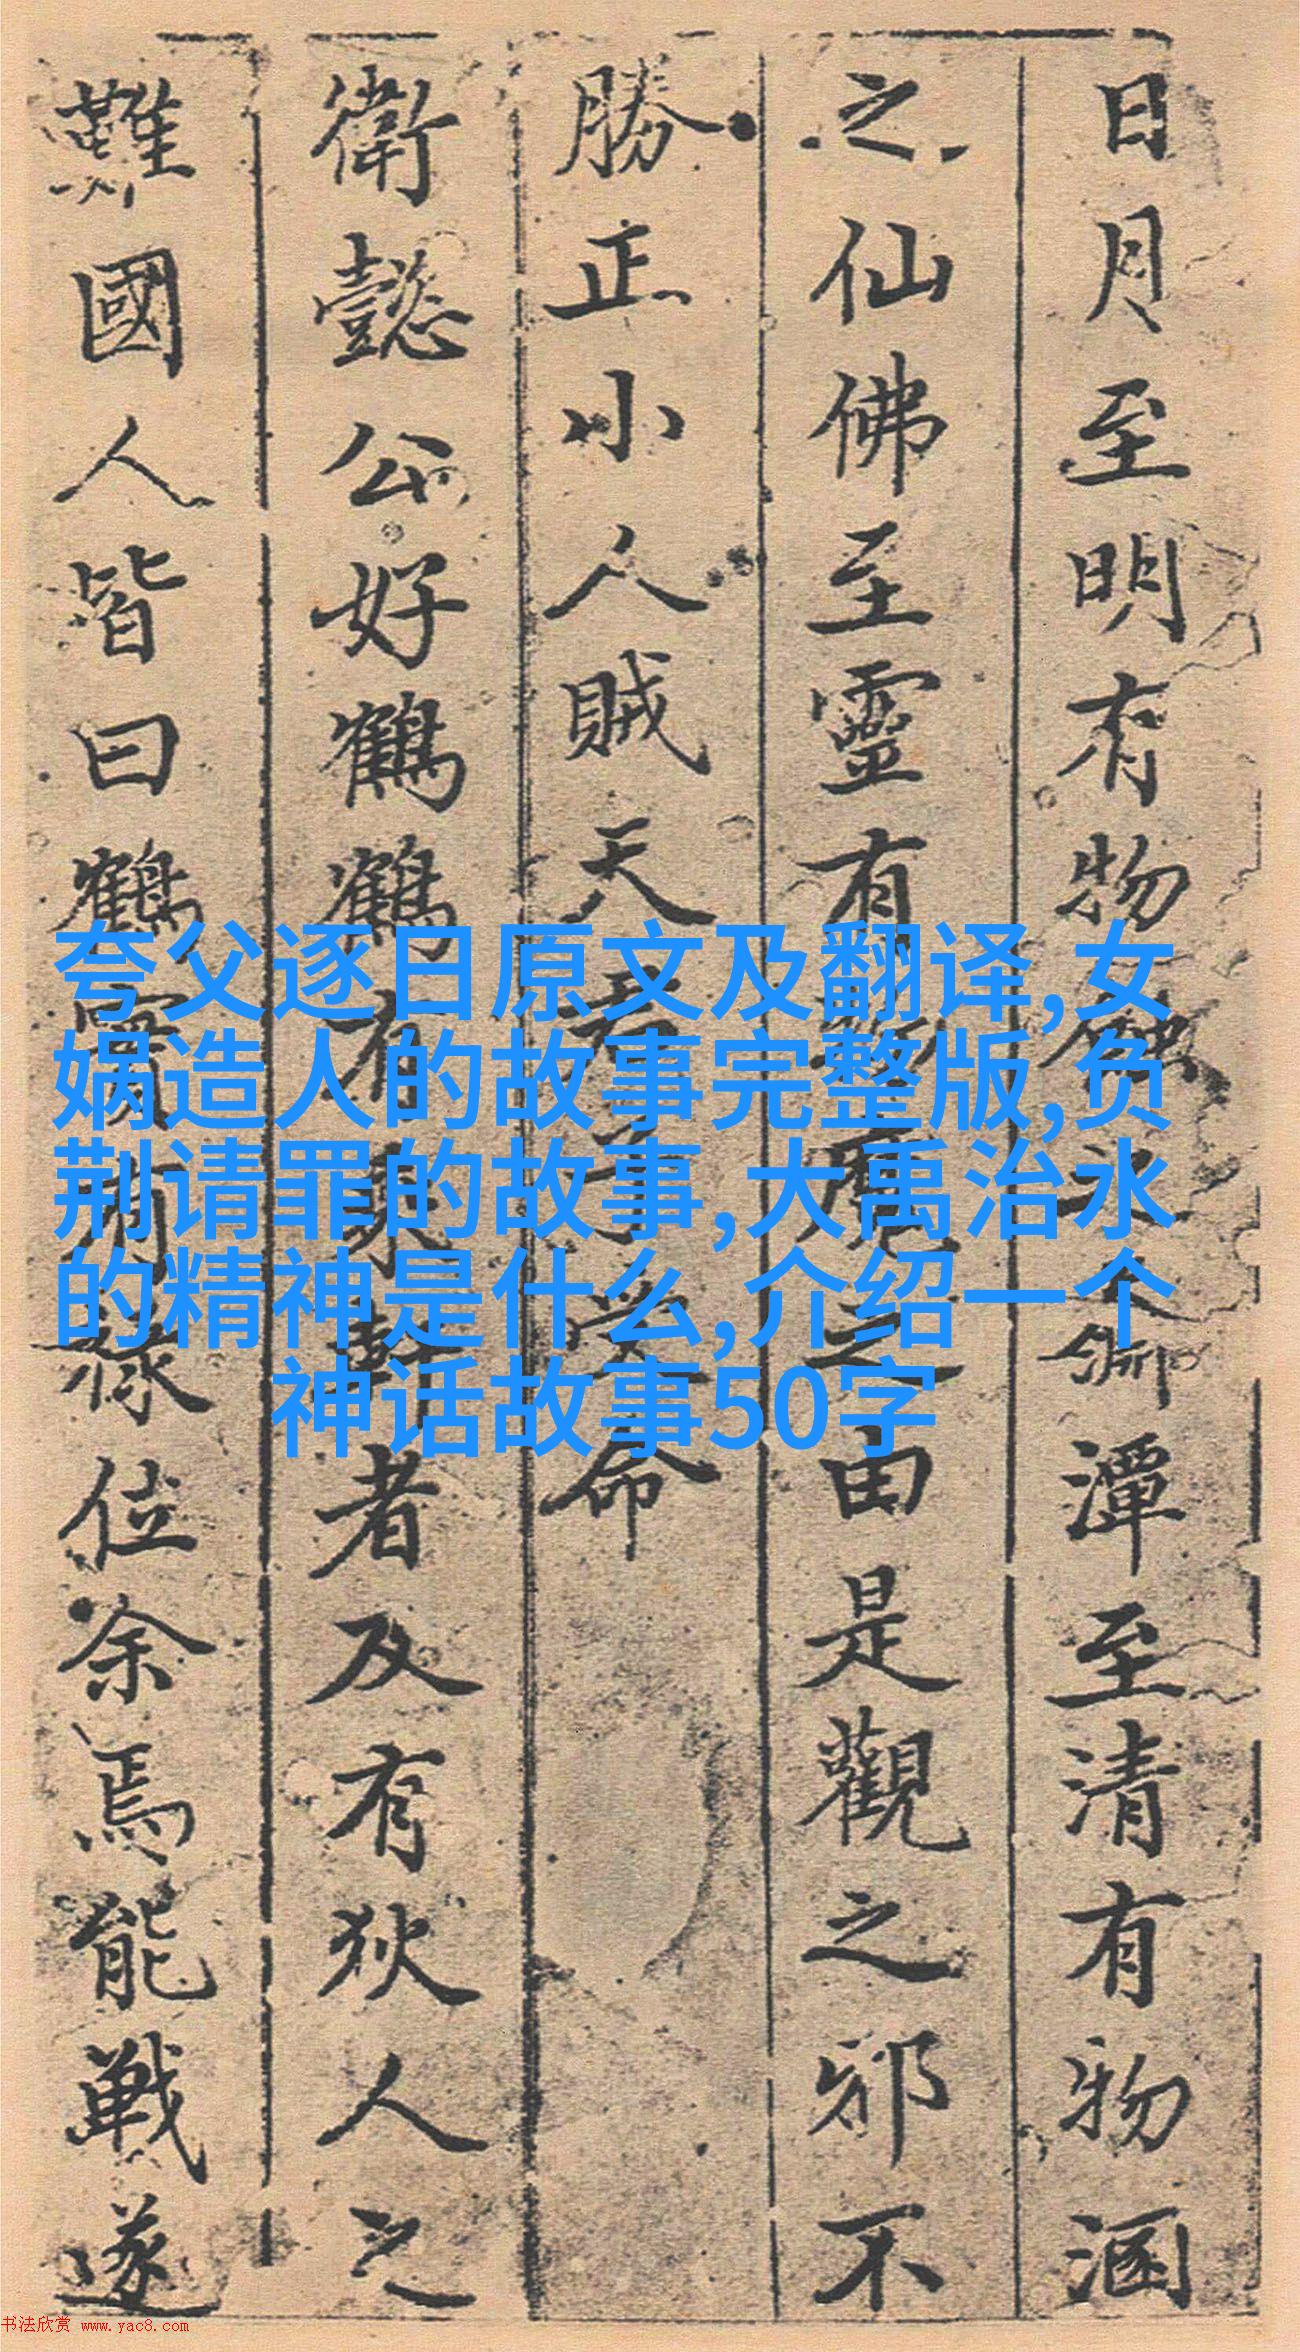 日月至明有物蝕之潭至清有物涵
之仙佛至靈有物魔之由是觀之邪不
勝正小人賊天君子受命
衛懿公好鶴鶴有乘軒者及有狄人之
難國人皆曰鶴實有祿位余焉能戰遂
夸父逐日原文及翻译,女
娲造人的故事完整版,负
荆请罪的故事,大禹治水
的精神是什么,介绍一个
神话故事50字
书法欣赏 www.yac8.com